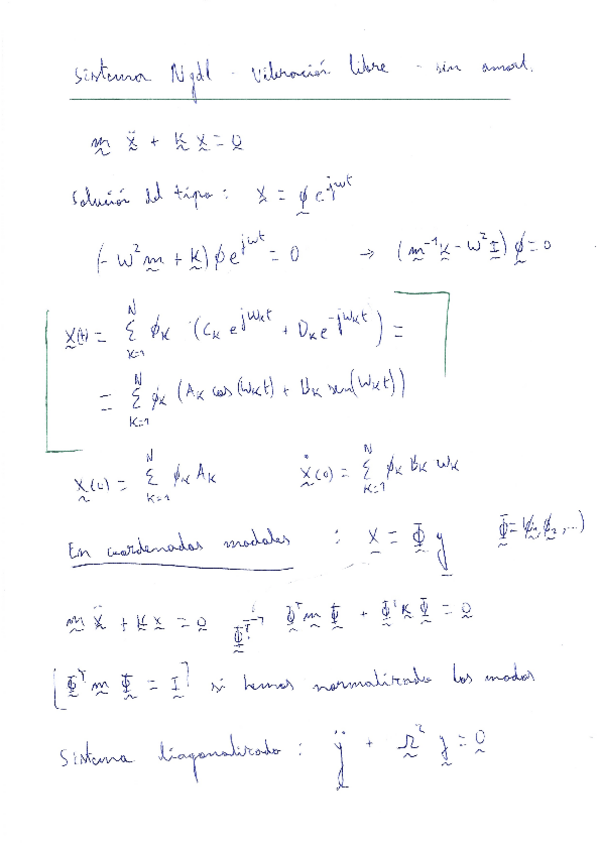 Sistema Ngdl - Vibración libre - sin amort.
m ẍ + K x = 0
Solución del tipo: x = ϕ e^{jωt}
(-ω² m + K) ϕ e^{jωt} = 0 → (m⁻¹ K - ω² I) ϕ = 0
x(t) = Σ_{K=1}^{N} ϕ_K (C_K e^{jω_K t} + D_K e^{-jω_K t}) =
= Σ_{K=1}^{N} ϕ_K (A_K cos(ω_K t) + B_K sen(ω_K t))
x(0) = Σ_{K=1}^{N} ϕ_K A_K ẋ(0) = Σ_{K=1}^{N} ϕ_K B_K ω_K
En coordenadas modales : x = Φ y Φ = (ϕ₁, ϕ₂, ...)
m ẍ + K x = 0 Φᵀ m Φ + Φᵀ K Φ = 0
[Φᵀ m Φ = I] si hemos normalizado los modos
Sistema diagonalizado : ÿ + Ω² y = 0